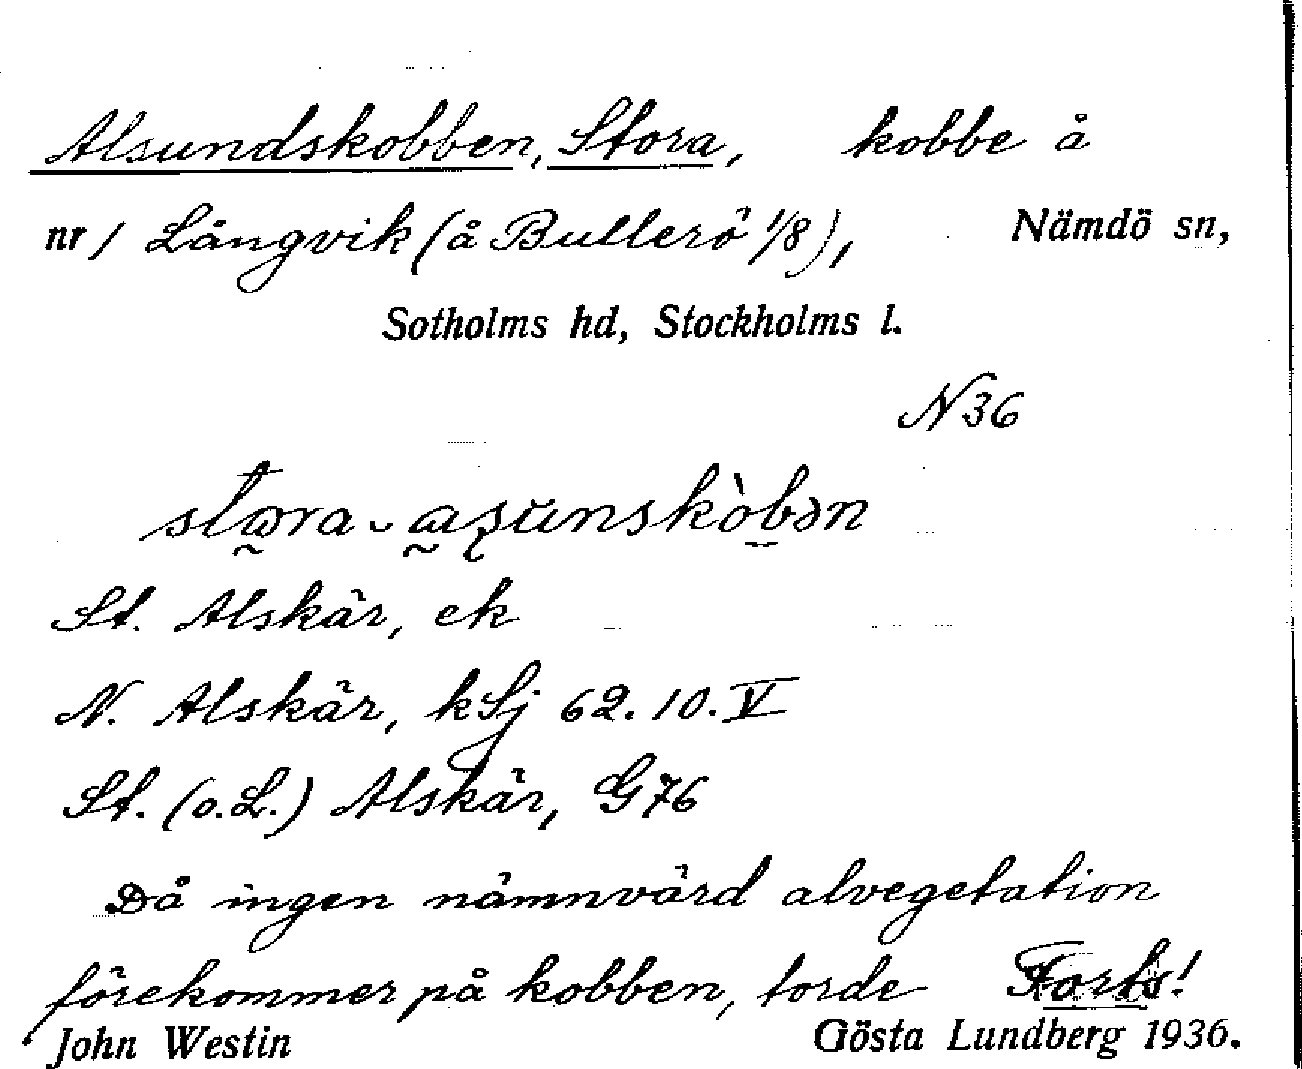 Alsundskobben, Stora, kobbe å
nr 1 Långvik (å Bullerö 1/8), Nämdö sn,
Sotholms hd, Stockholms l.
N36
St. Alskär, ek
N. Alskär, kSj 62.10.V
St. (o.L.) Alskär, G76
Då ingen nämnvärd alvegetation
förekommer på kobben, torde Forts!
John Westin Gösta Lundberg 1936.